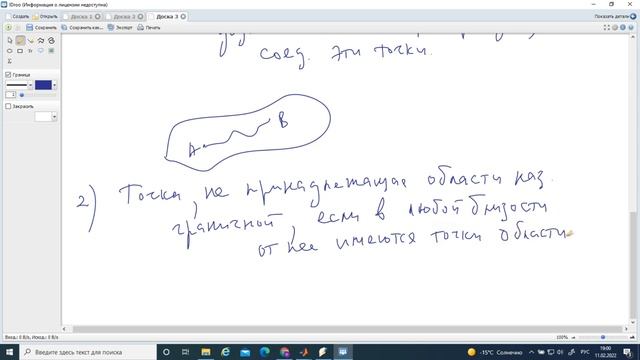 IDroo (Информация о лицензии недоступна)
Создать Открыть Доска 1 Доска 2 Доска 3 Показать детали
Сохранить Сохранить как... Экспорт Печать
соед. эти точки.
Граница
Закрасить
A B
2) Точка, не принадлежащая области наз.
граничной, если в любой близости
от нее имеются точки области
Вход.: 0 B/s, Исход.: 0 B/s 100%
Введите здесь текст для поиска
-15°C Солнечно РУС 19:00
11.02.2022